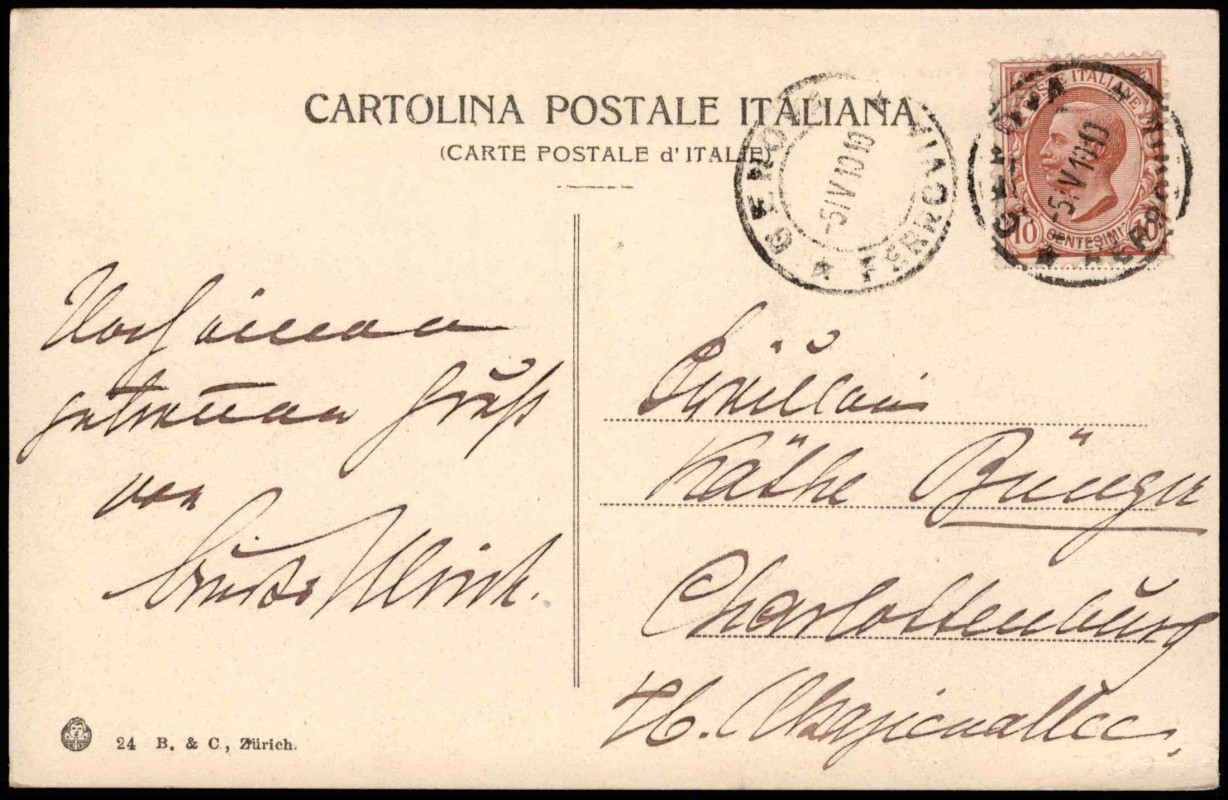 CARTOLINA POSTALE ITALIANA
(CARTE POSTALE d'ITALIE)
GENOVA FERROVIA
-5 IV 10 10
POSTE ITALIANE
10 CENTESIMI 10
GENOVA FERROVIA
-5 IV 10 10
Noch einen
getreuen Gruß
von
Ulrich.
Fräulein
Käthe Bünger
Charlottenburg
Akazienallee.
24 B. & C., Zürich.